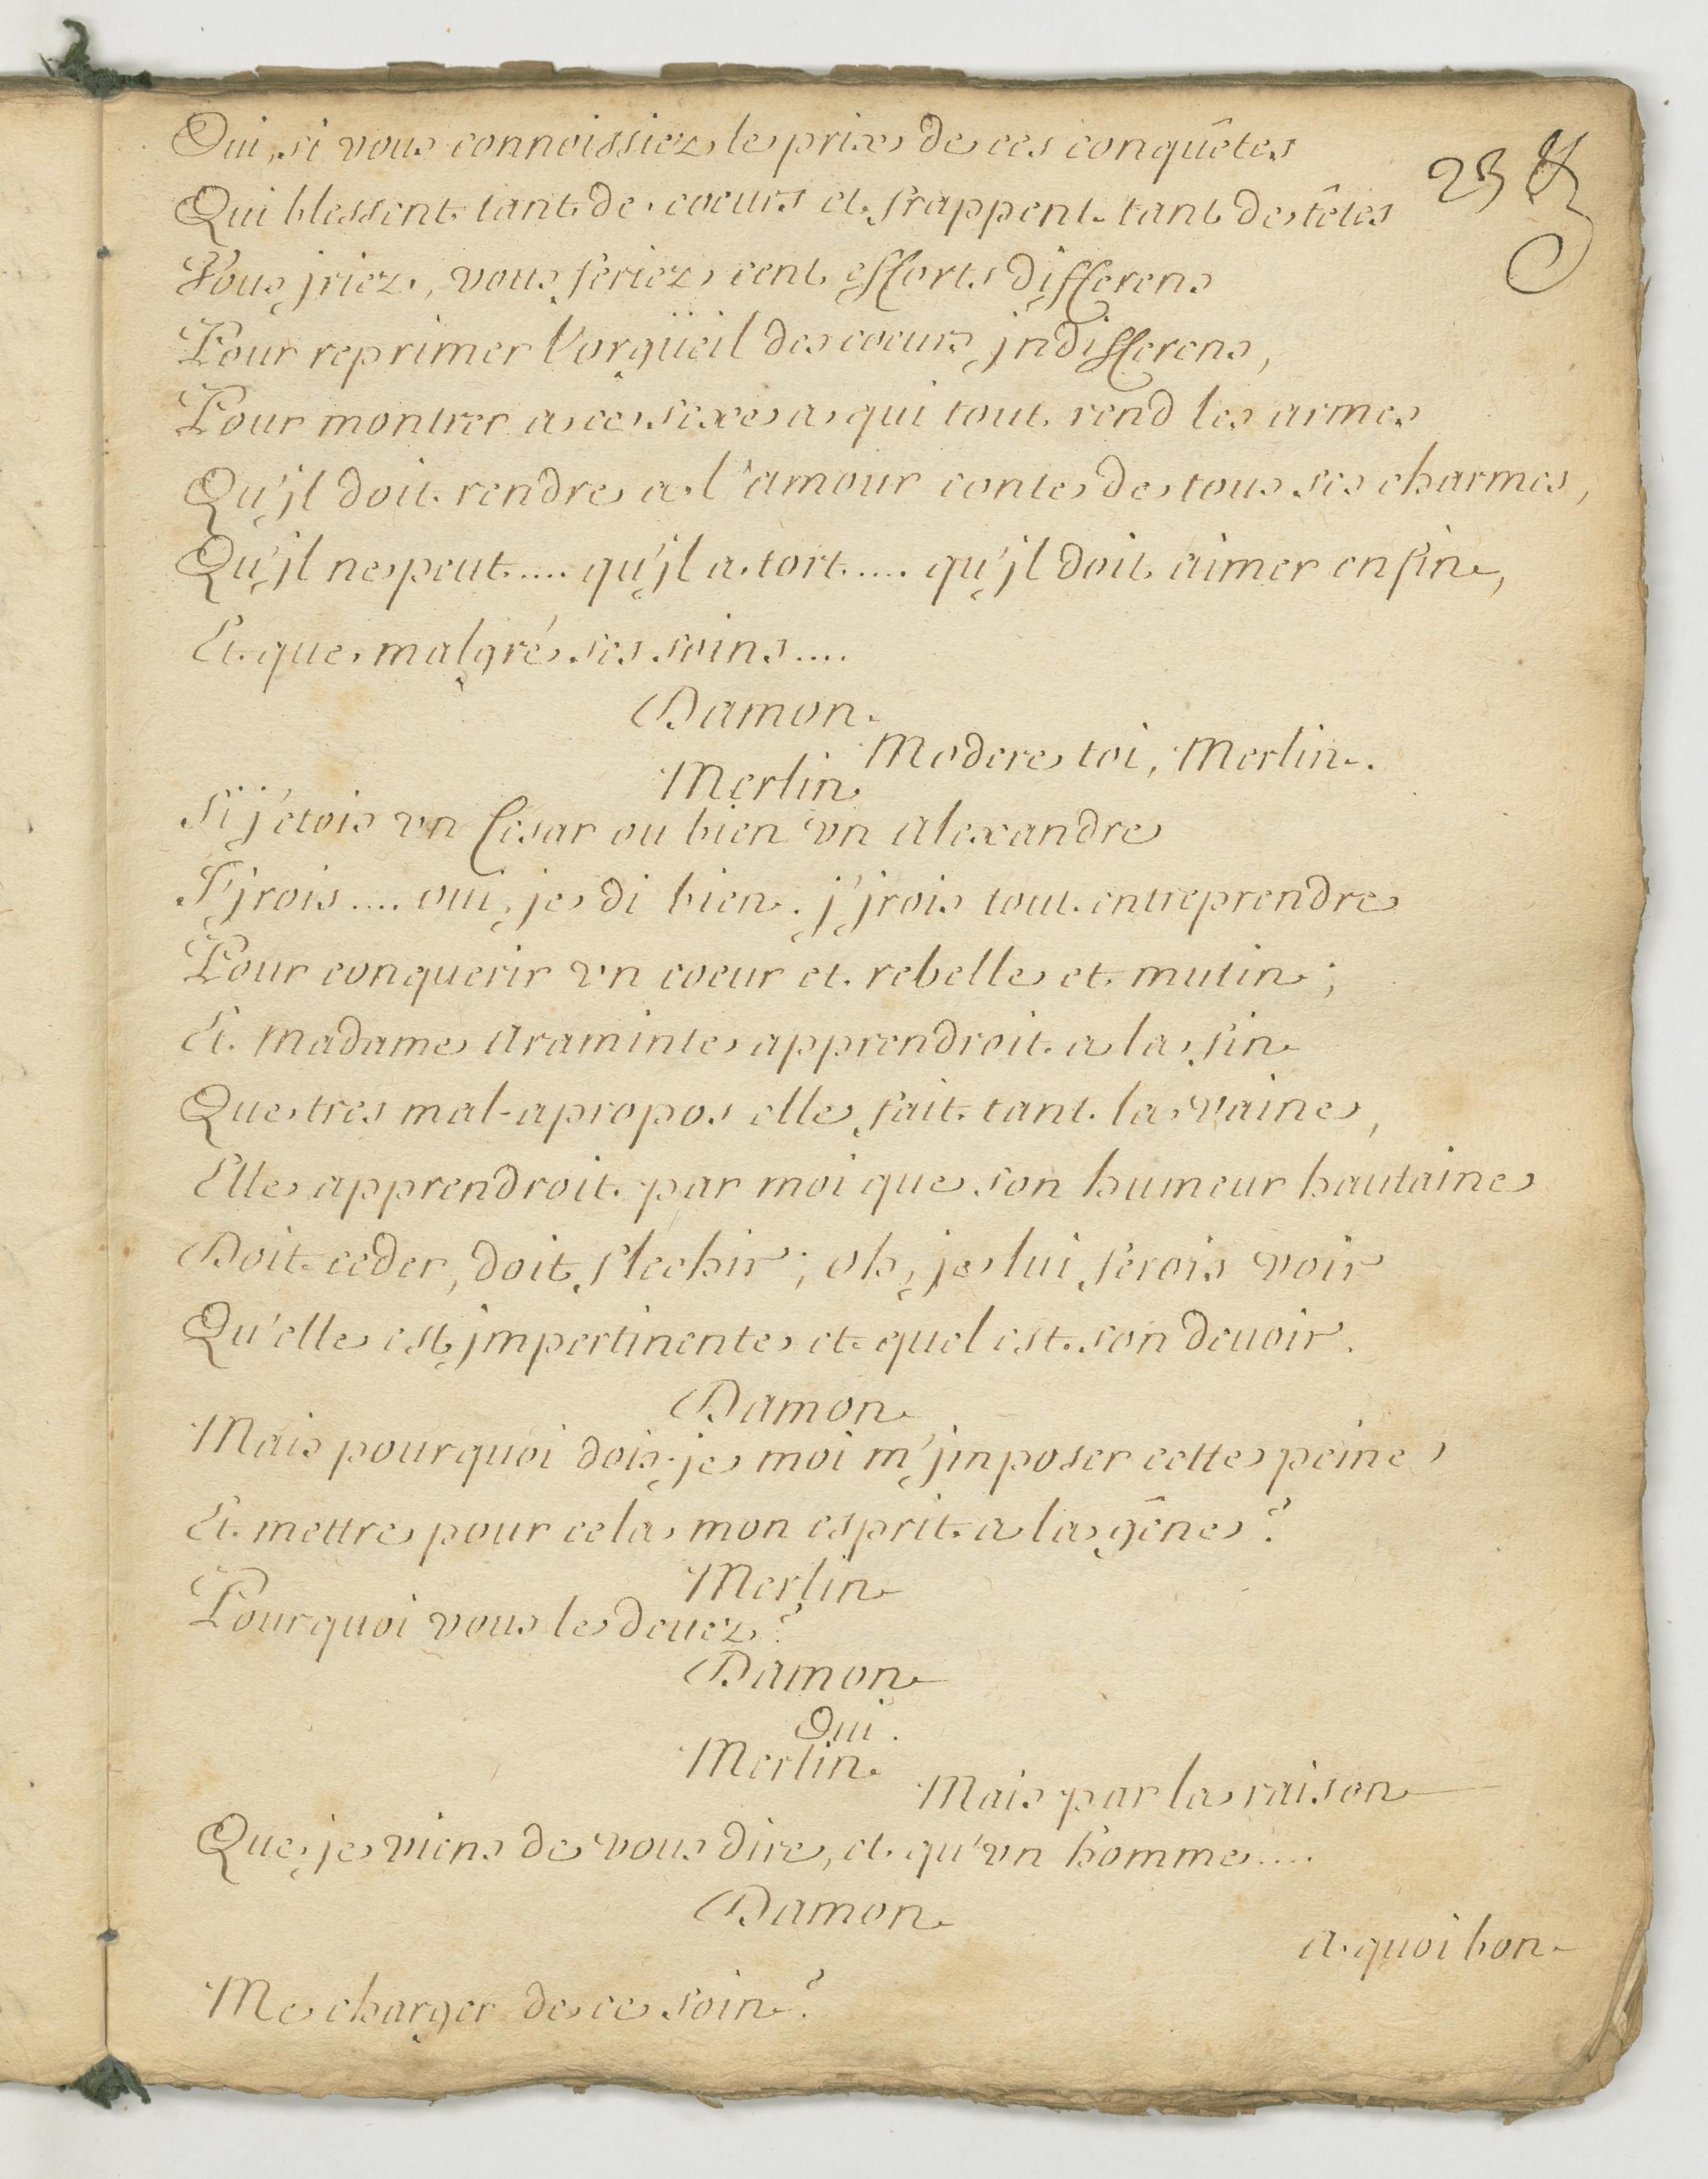 Oui, si vous connoissiez le prix de ces conquêtes
23
Qui blessent tant de coeurs et frappent tant de têtes
Vous jriez, vous feriez cent efforts differens
Pour reprimer l'orgüeil des coeurs jndifferens,
Pour montrer a ce sexe a qui tout rend les armes
Qu'jl doit rendre a l'amour conte de tous ses charmes,
Qu'jl ne peut .... qu'jl a tort .... qu'jl doit aimer enfin,
Et que malgré ses soins ....
Damon
Modere toi, Merlin.
Merlin
Si j'etois vn Cesar ou bien vn alexandre
J'jrois .... oui, je di bien. j'jrois tout entreprendre
Pour conquerir vn coeur et rebelle et mutin;
Et Madame Araminte apprendroit a la fin
Que tres mal-apropos elle fait tant la vaine,
Elle apprendroit par moi que son humeur hautaine
Doit ceder, doit flechir; oh, je lui ferois voir
Qu'elle est jmpertinente et quel est son deuoir.
Damon
Mais pourquoi dois-je moi m'jmposer cette peine
Et mettre pour cela mon esprit a la gêne?
Merlin
Pourquoi vous le deuez?
Damon
Oui.
Merlin
Mais par la raison
Que je viens de vous dire, et qu'vn homme ....
Damon
a quoi bon
Me charger de ce soin?